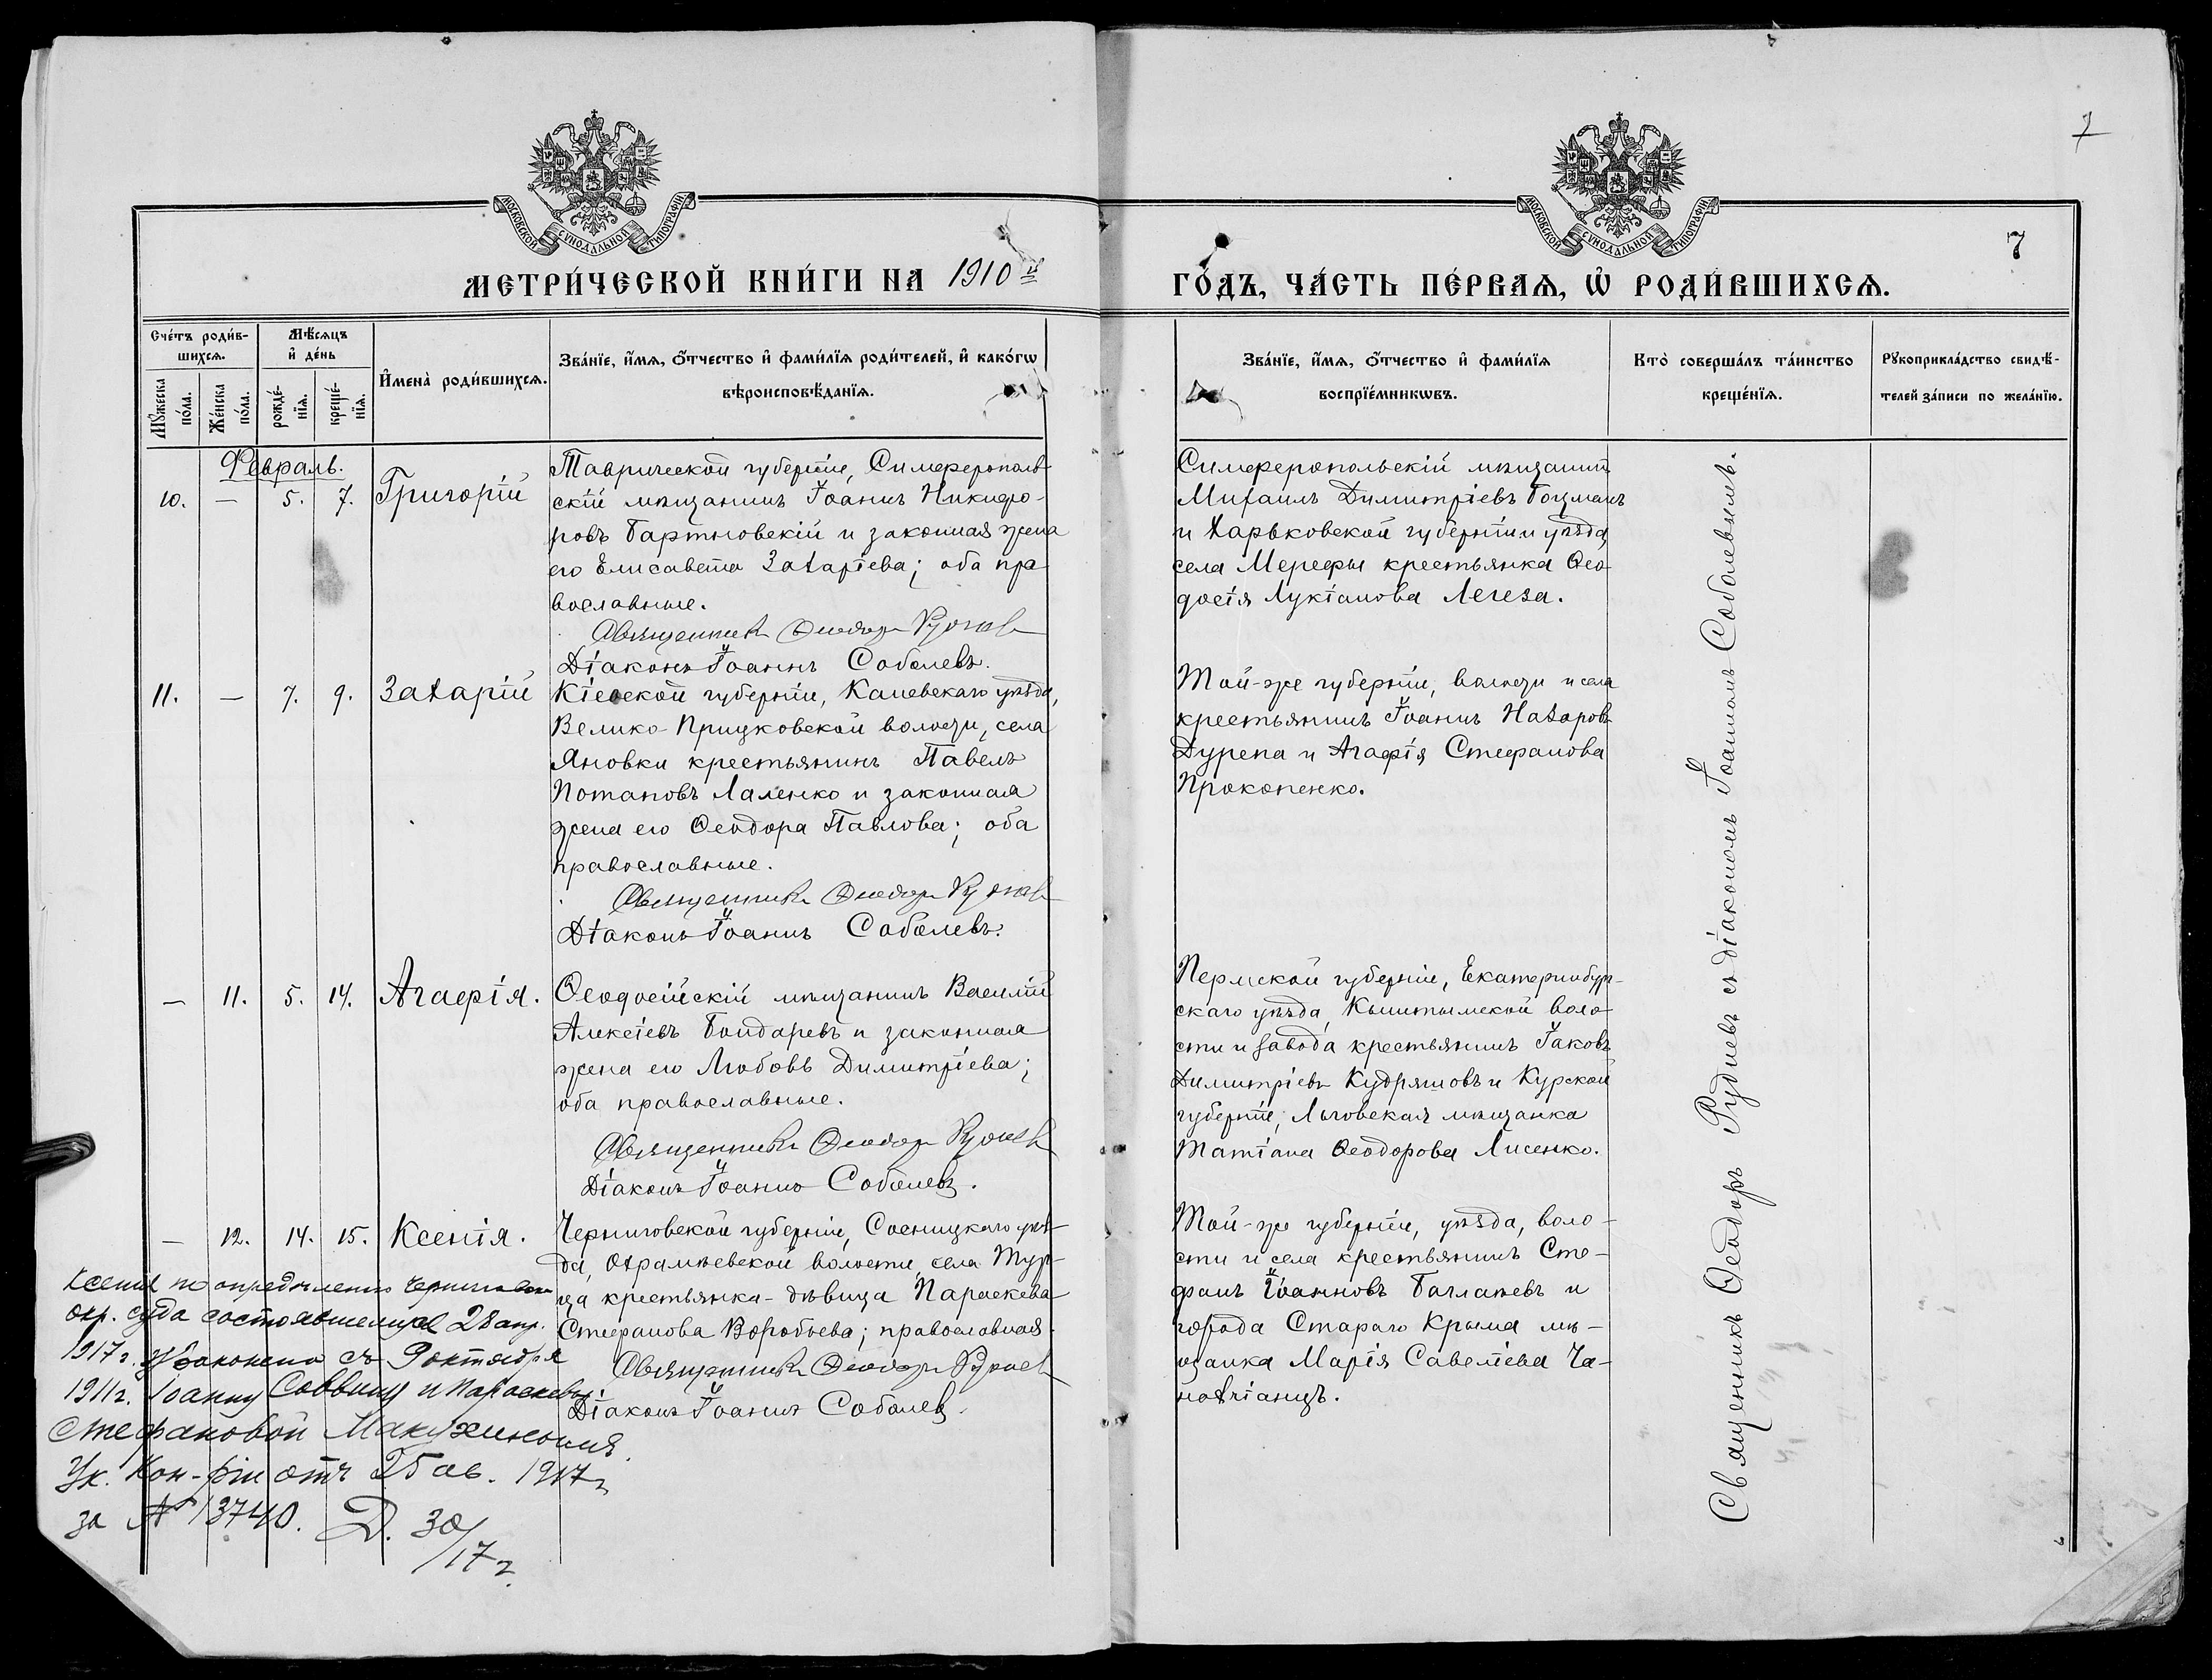 7
МОСКОВСКОЙ СѴНОДАЛЬНОЙ ТИПОГРАФІИ
МОСКОВСКОЙ СѴНОДАЛЬНОЙ ТИПОГРАФІИ
7
МЕТРИ́ЧЕСКОЙ КНИ́ГИ НА 1910 й
ГО́ДЪ, ЧА́СТЬ ПЕ́РВАѦ, Ѡ҆ РОДИ́ВШИХСѦ.
Сче́тъ роди́в-
шихсѧ.
Мꙋ́жеска
по́ла.
Же́нска
по́ла.
Мѣ́сѧцъ
и҆ де́нь
рожде́-
нїѧ.
креще́-
нїѧ.
И҆мена̀ роди́вшихсѧ.
Зва́нїе, и҆́мѧ, ѻ҆́тчество и҆ фами́лїѧ роди́телей, и҆ како́гѡ
вѣроисповѣ́данїѧ.
Зва́нїе, и҆́мѧ, ѻ҆́тчество и҆ фами́лїѧ
воспрїе́мникѡвъ.
Кто̀ соверша́лъ та́инство
креще́нїѧ.
Рꙋкоприкла́дство свидѣ́-
телей за́писи по жела́нїю.
Февраль.
10. — 5. 7. Григорій
Таврической губерніи, Симферополь-
скій мѣщанинъ Іоаннъ Никифо-
ровъ Бартновскій и законная жена
его Елисавета Захаріева; оба пра-
вославные.
Священникъ Ѳеодоръ Рудневъ
Діаконъ Іоаннъ Соболевъ.
Симферопольскій мѣщанинъ
Михаилъ Димитріевъ Гоцманъ
и Харьковской губерніи и уѣзда,
села Мерефы крестьянка Ѳео-
досія Лукіанова Легеза.
11. — 7. 9. Захарій
Кіевской губерніи, Каневскаго уѣзда,
Велико-Прицковской волости, села
Яновки крестьянинъ Павелъ
Потаповъ Лаленко и законная
жена его Ѳеодора Павлова; оба
православные.
Священникъ Ѳеодоръ Рудневъ
Діаконъ Іоаннъ Соболевъ.
Той-же губерніи, волости и села
крестьянинъ Іоаннъ Назаровъ
Дурепа и Агафія Стефанова
Прокопенко.
— 11. 5. 14. Агафія.
Ѳеодосійскій мѣщанинъ Василій
Алексіевъ Бондаревъ и законная
жена его Любовь Димитріева;
оба православные.
Священникъ Ѳеодоръ Рудневъ
Діаконъ Іоаннъ Соболевъ.
Пермской губерніи, Екатеринбург-
скаго уѣзда, Кыштымской воло-
сти и завода крестьянинъ Іаковъ
Димитріевъ Кудряшовъ и Курской
губерніи, Льговская мѣщанка
Татіана Ѳеодорова Лисенко.
— 12. 14. 15. Ксенія.
Черниговской губерніи, Сосницкаго уѣз-
да, Охрамѣевской волости, села Тур-
ца крестьянка-дѣвица Параскева
Стефанова Воробьева; православная.
Священникъ Ѳеодоръ Рудневъ
Діаконъ Іоаннъ Соболевъ.
Той-же губерніи, уѣзда, воло-
сти и села крестьянинъ Сте-
фанъ Іоанновъ
и
города Стараго Крыма мѣ-
щанка Марія Савеліева
Ксенія по опредѣленію Черниговск.
окр. суда состоявшемуся 28 апр.
1917 г. узаконена съ 9 октября
1911 г. Іоанну Саввину и Параскевѣ
Стефановой
Ук. Кон-ріи отъ 25 ав. 1917 г.
за № 13740. Д. 30/17 г.
Священникъ Ѳеодоръ Рудневъ съ діакономъ Іоанномъ Соболевымъ.